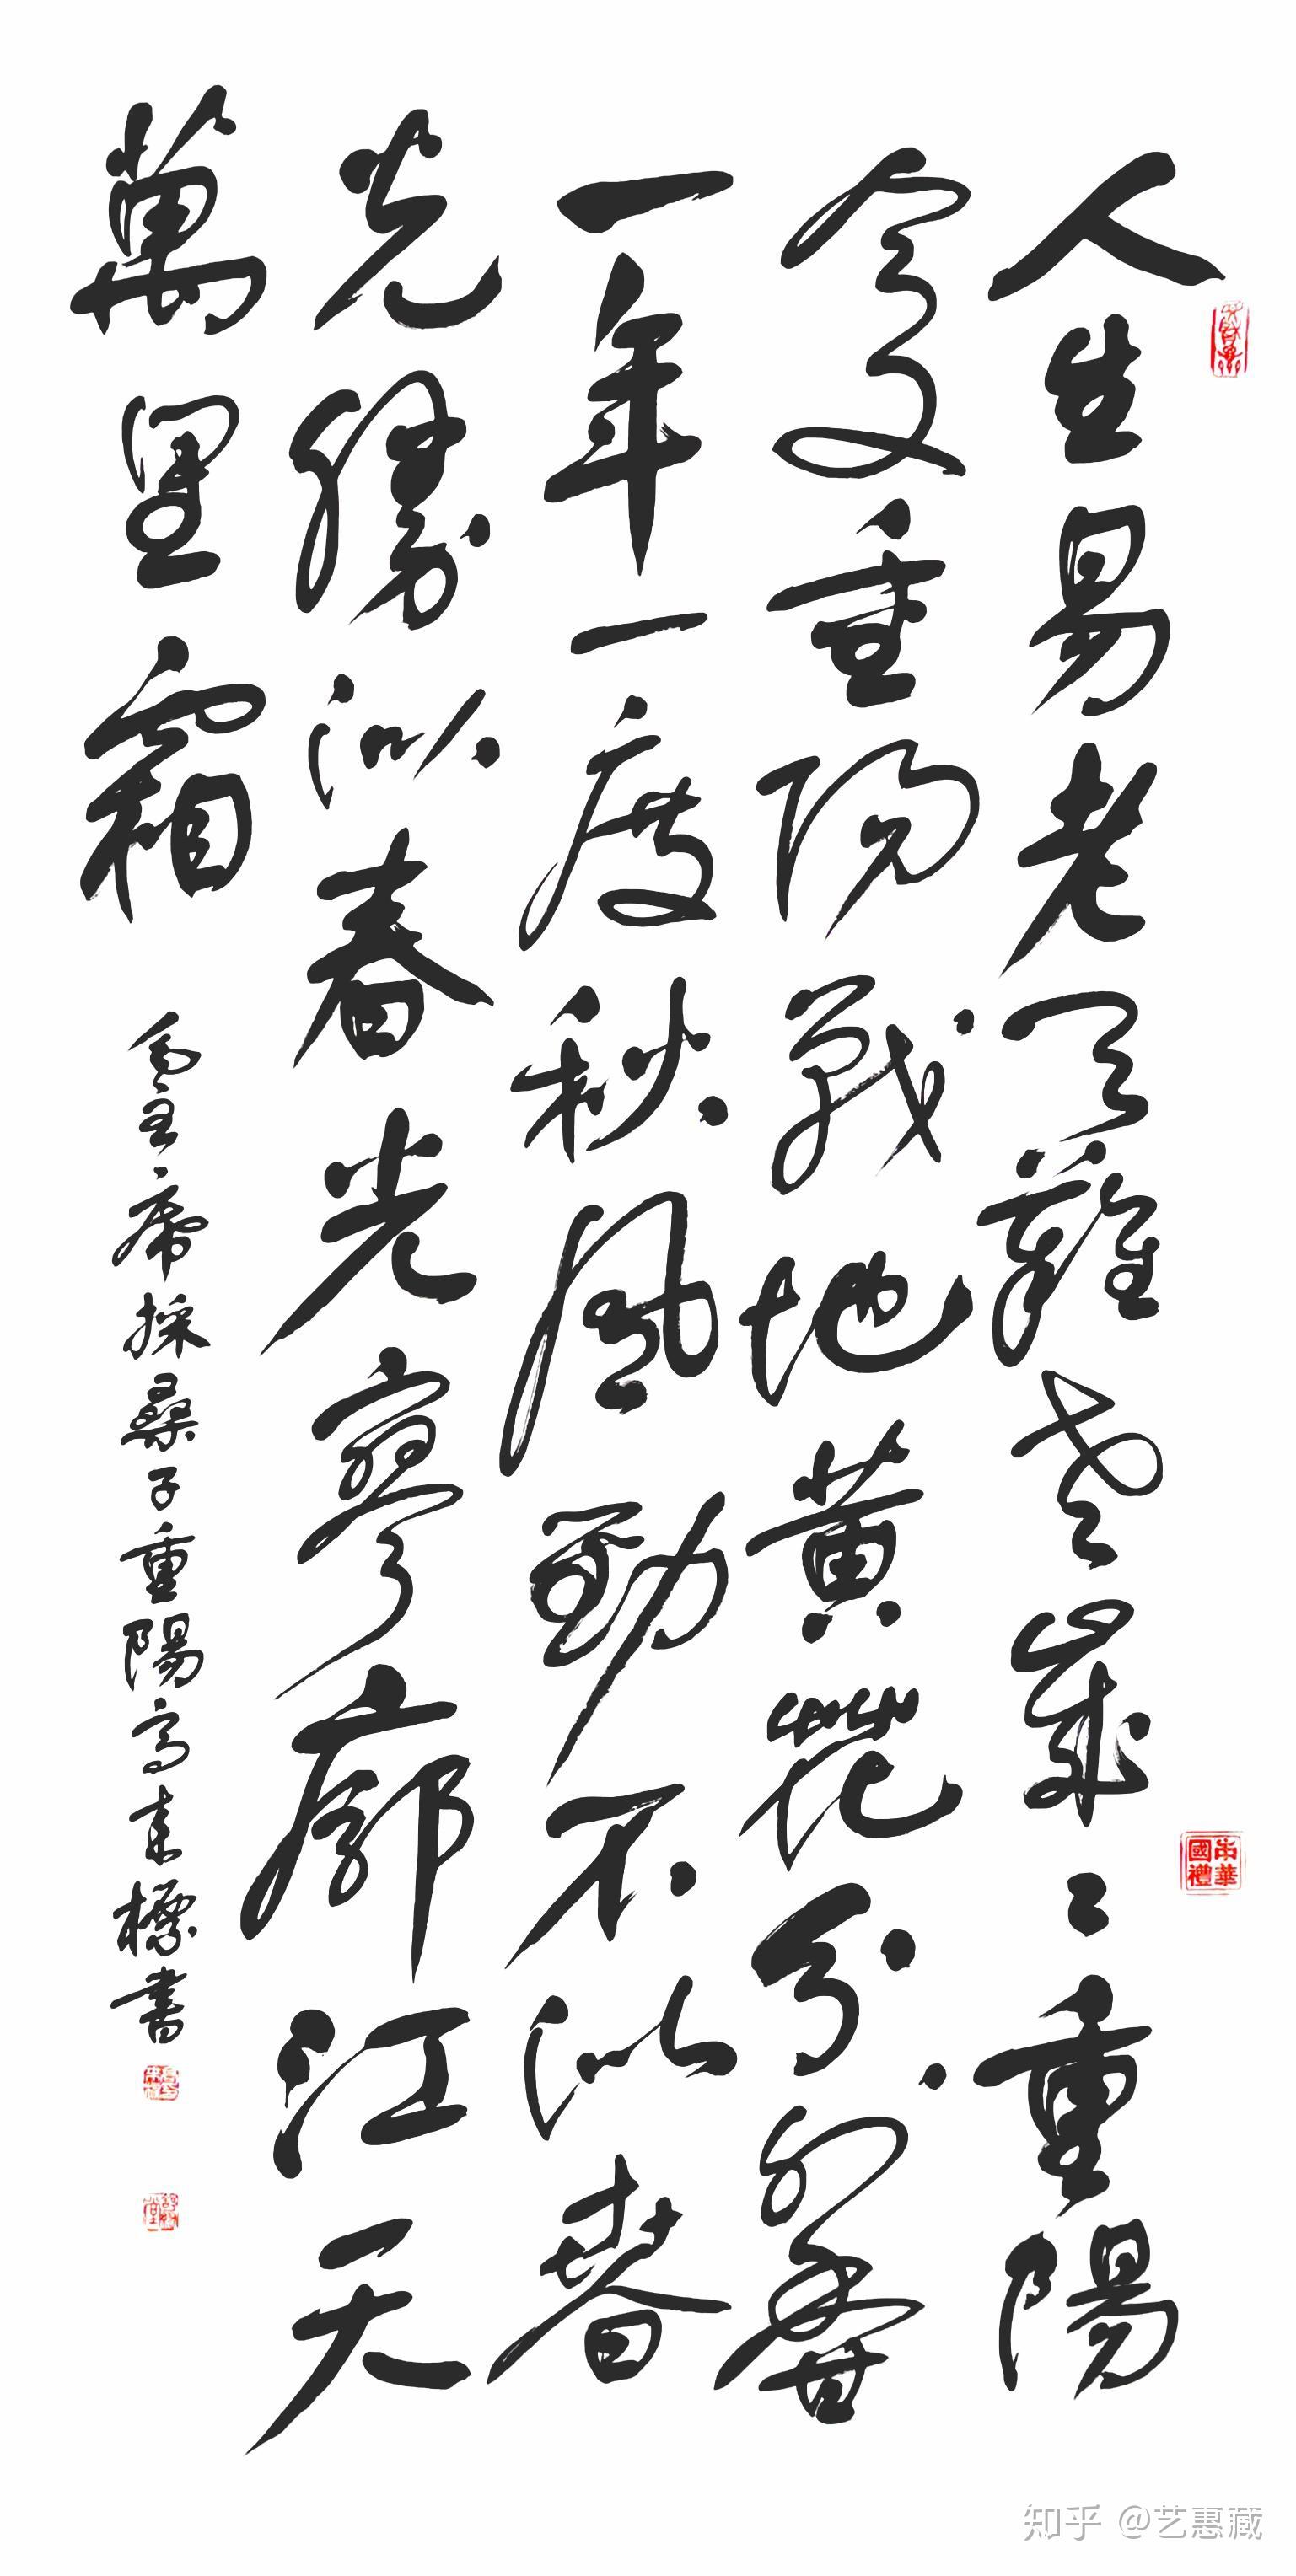 人生易老天難老歲々重陽
今又重陽戰地黄花分外香
一年一度秋風勁不似春
光勝似春光寥廓江天
萬里霜
毛主席採桑子重陽高標書
中華國禮
知乎 @艺惠藏